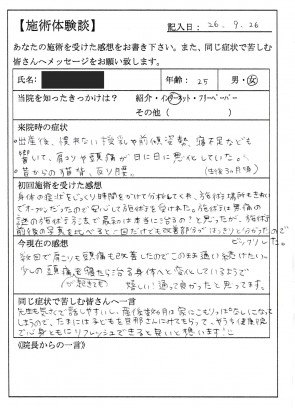 【施術体験談】 記入日：26.9.26
あなたの施術を受けた感想をお書き下さい。また、同じ症状で苦しむ
皆さんへメッセージをお願い致します。
氏名： 年齢：25 男・女
当院を知ったきっかけは？ 紹介・インターネット・フリーペーパー
その他（ ）
来院時の症状
・出産後、慣れない授乳や前傾姿勢、寝不足なども
響いて、肩コリや頭痛が日に日に悪化していた。
・昔からの猫背、反り腰。（生後3ヵ月頃）
初回施術を受けた感想
身体の症状をじっくり時間をかけて分析してくれ、施術場所もきれいで
オープンだったので安心して施術を受けられた。施術は無痛の
謎の施術方法で最初は本当に治るの？と思ったが、施術
前後の写真を比べると一回だけでも改善部分がはっきりと分かったので
ビックリした。
今現在の感想
数回で肩こりも頭痛も改善したのでこのまま通い続けたい。
少しの頭痛も寝たら治る身体へと変化しているようで
（が起きても） 嬉しい！通って良かったと思います！
同じ症状で苦しむ皆さんへ一言
先生も気さくで話しやすいし、産後数ヵ月は家にこもりっぱなしになって
しまうので、たまには子どもを旦那さんにみてもらって、やるも健康状態
で心身ともにリフレッシュできると良いと想います！
《院長からの一言》